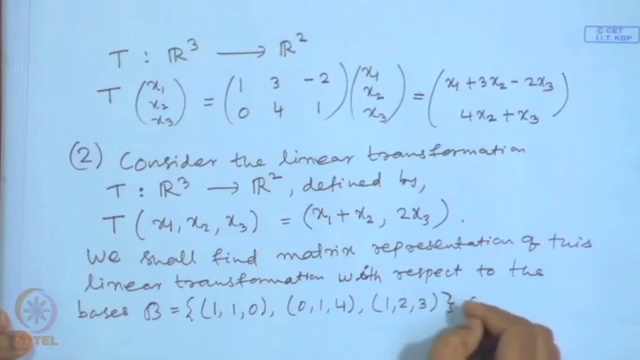 © CET
I.I.T. KGP
T : ℝ³ ⟶ ℝ²
T (x₁ x₂ x₃) = (1 3 -2 0 4 1) (x₁ x₂ x₃) = (x₁ + 3x₂ - 2x₃ 4x₂ + x₃)
(2) Consider the linear transformation
T : ℝ³ ⟶ ℝ², defined by,
T (x₁, x₂, x₃) = (x₁ + x₂, 2x₃).
We shall find matrix representation of this
linear transformation with respect to the
bases B = {(1, 1, 0), (0, 1, 4), (1, 2, 3)}
NPTEL